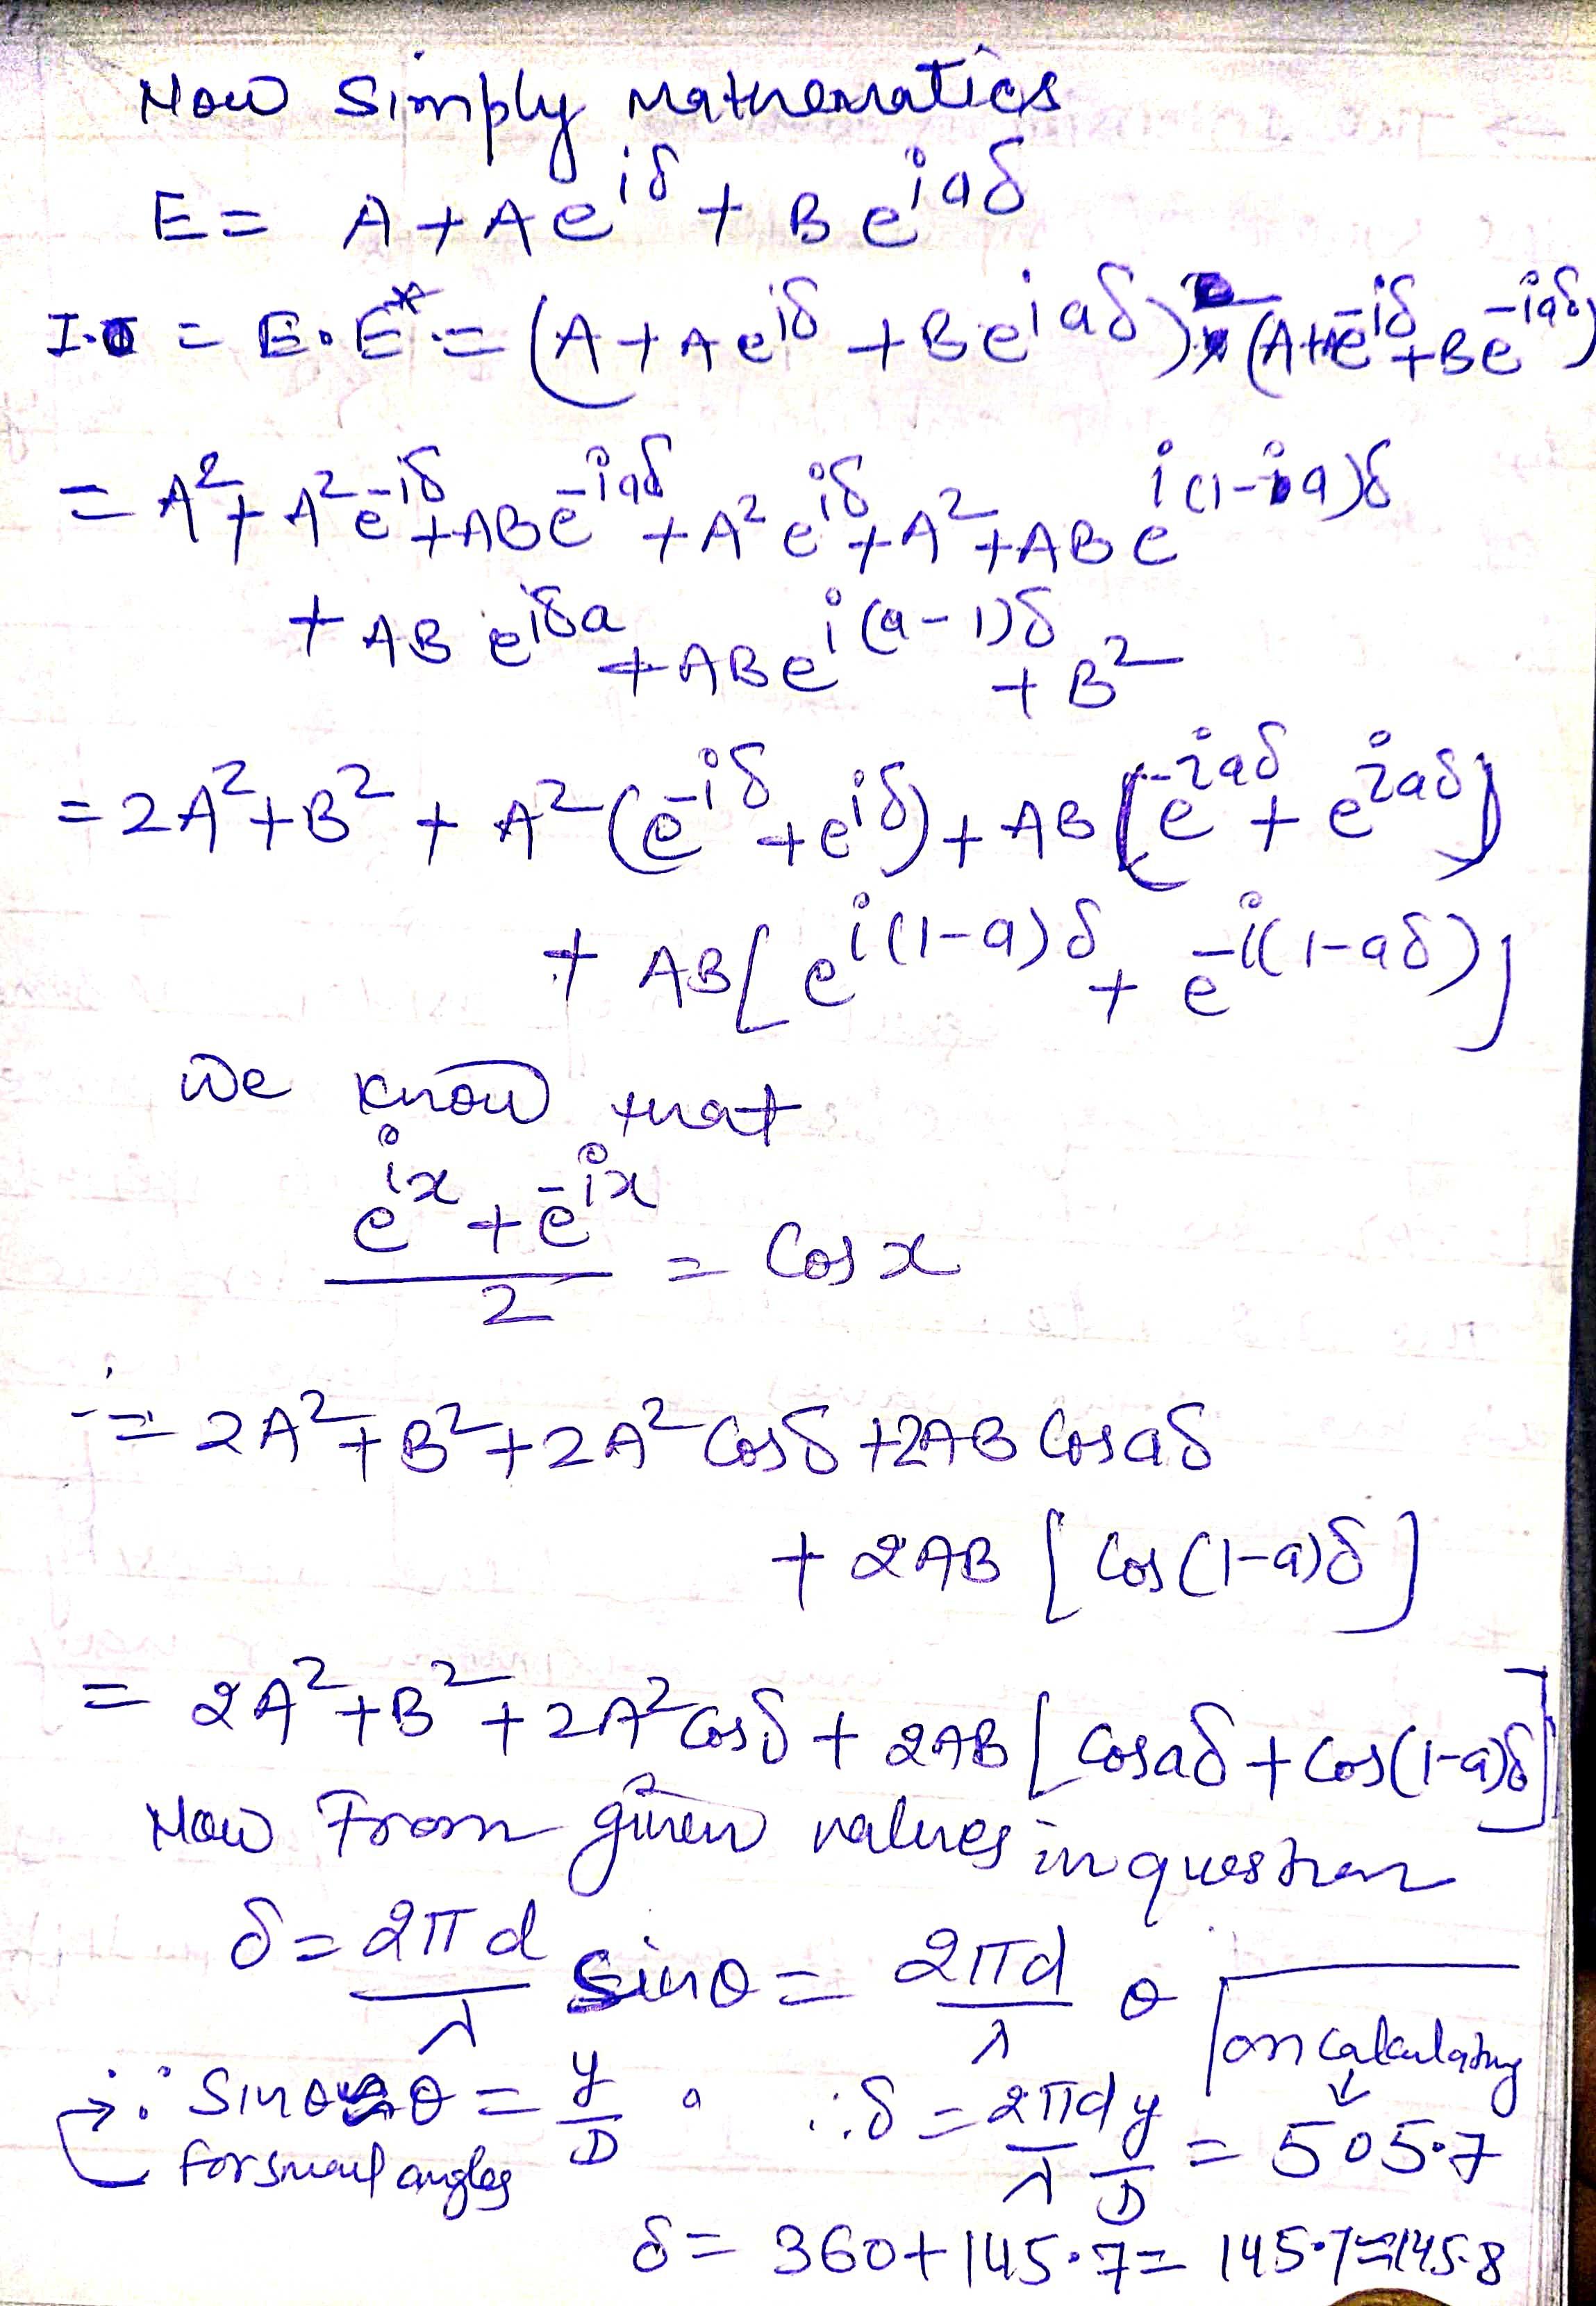 Now Simply Mathematics
E = A + Ae^{iδ} + Be^{iaδ}
I = E·E* = (A + Ae^{iδ} + Be^{iaδ}) × (A + Ae^{-iδ} + Be^{-iaδ})
= A² + A²e^{-iδ} + ABe^{-iaδ} + A²e^{iδ} + A² + ABe^{i(1-a)δ}
+ ABe^{iδa} + ABe^{i(a-1)δ} + B²
= 2A² + B² + A²(e^{-iδ} + e^{iδ}) + AB[e^{-iaδ} + e^{iaδ}]
+ AB[e^{i(1-a)δ} + e^{-i(1-aδ)}]
We know that
(e^{ix} + e^{-ix})/2 = Cos x
∴ = 2A² + B² + 2A² Cosδ + 2AB Cosaδ
+ 2AB [Cos(1-a)δ]
= 2A² + B² + 2A² Cosδ + 2AB [Cosaδ + Cos(1-a)δ]
Now From given values in question
δ = 2πd/λ Sinθ = 2πd/λ θ
on calculating
∵ Sinθ ≈ θ = y/D ∴ δ = 2πd/λ y/D = 505.7
For small angles
δ = 360 + 145.7 = 145.7 ≈ 145.8